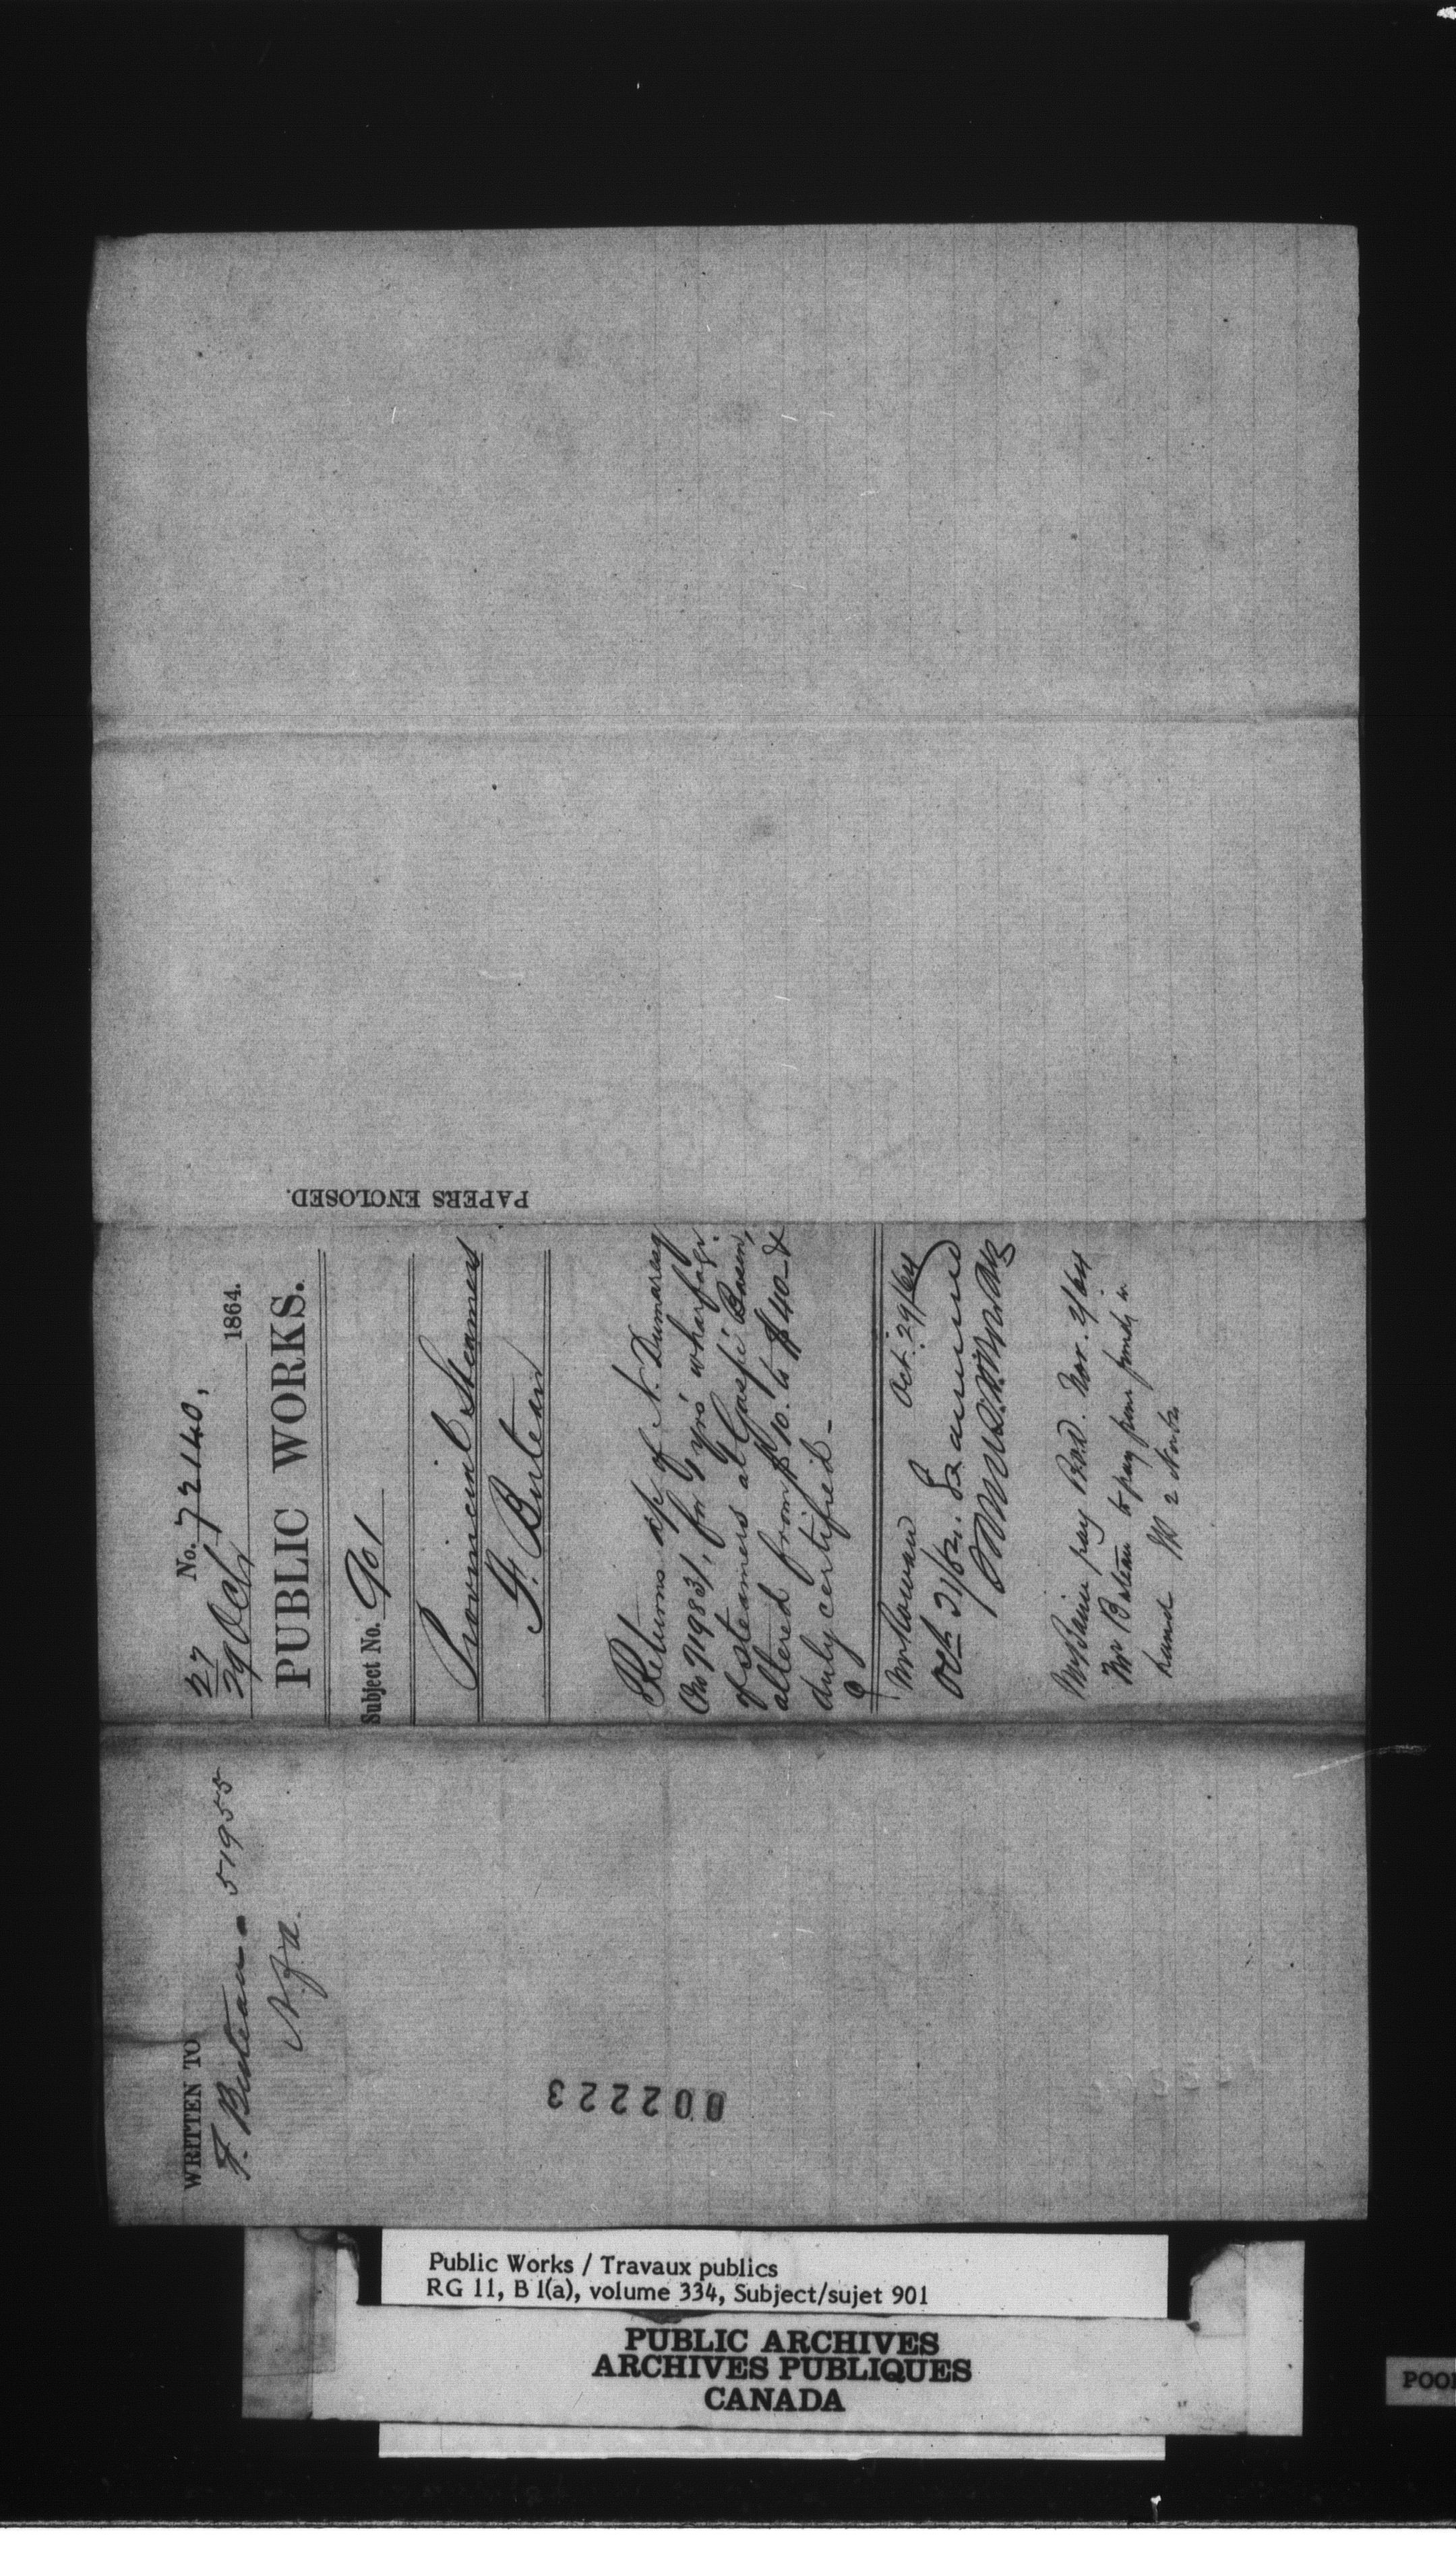 27 No. 72140,
29 Oct 1864.
PUBLIC WORKS.
Subject No. 901
Provincial Steamers
F. Buteau
Returns a/c of N. Dumaresq
(No 71983), for 4 yrs' wharfage
of steamers at Gaspé Basin,
altered from $10. to $40 - &
duly certified -
Mr Rowan Oct. 29/64
Oct 31/64. Examined
Mr Baine pay Nov. 2/64
Mr Buteau to pay from funds in
hand 2 Nov
PAPERS ENCLOSED.
WRITTEN TO
F. Buteau - 51955
N.f.a.
002223
Public Works / Travaux publics
RG 11, B 1(a), volume 334, Subject/sujet 901
PUBLIC ARCHIVES
ARCHIVES PUBLIQUES
CANADA